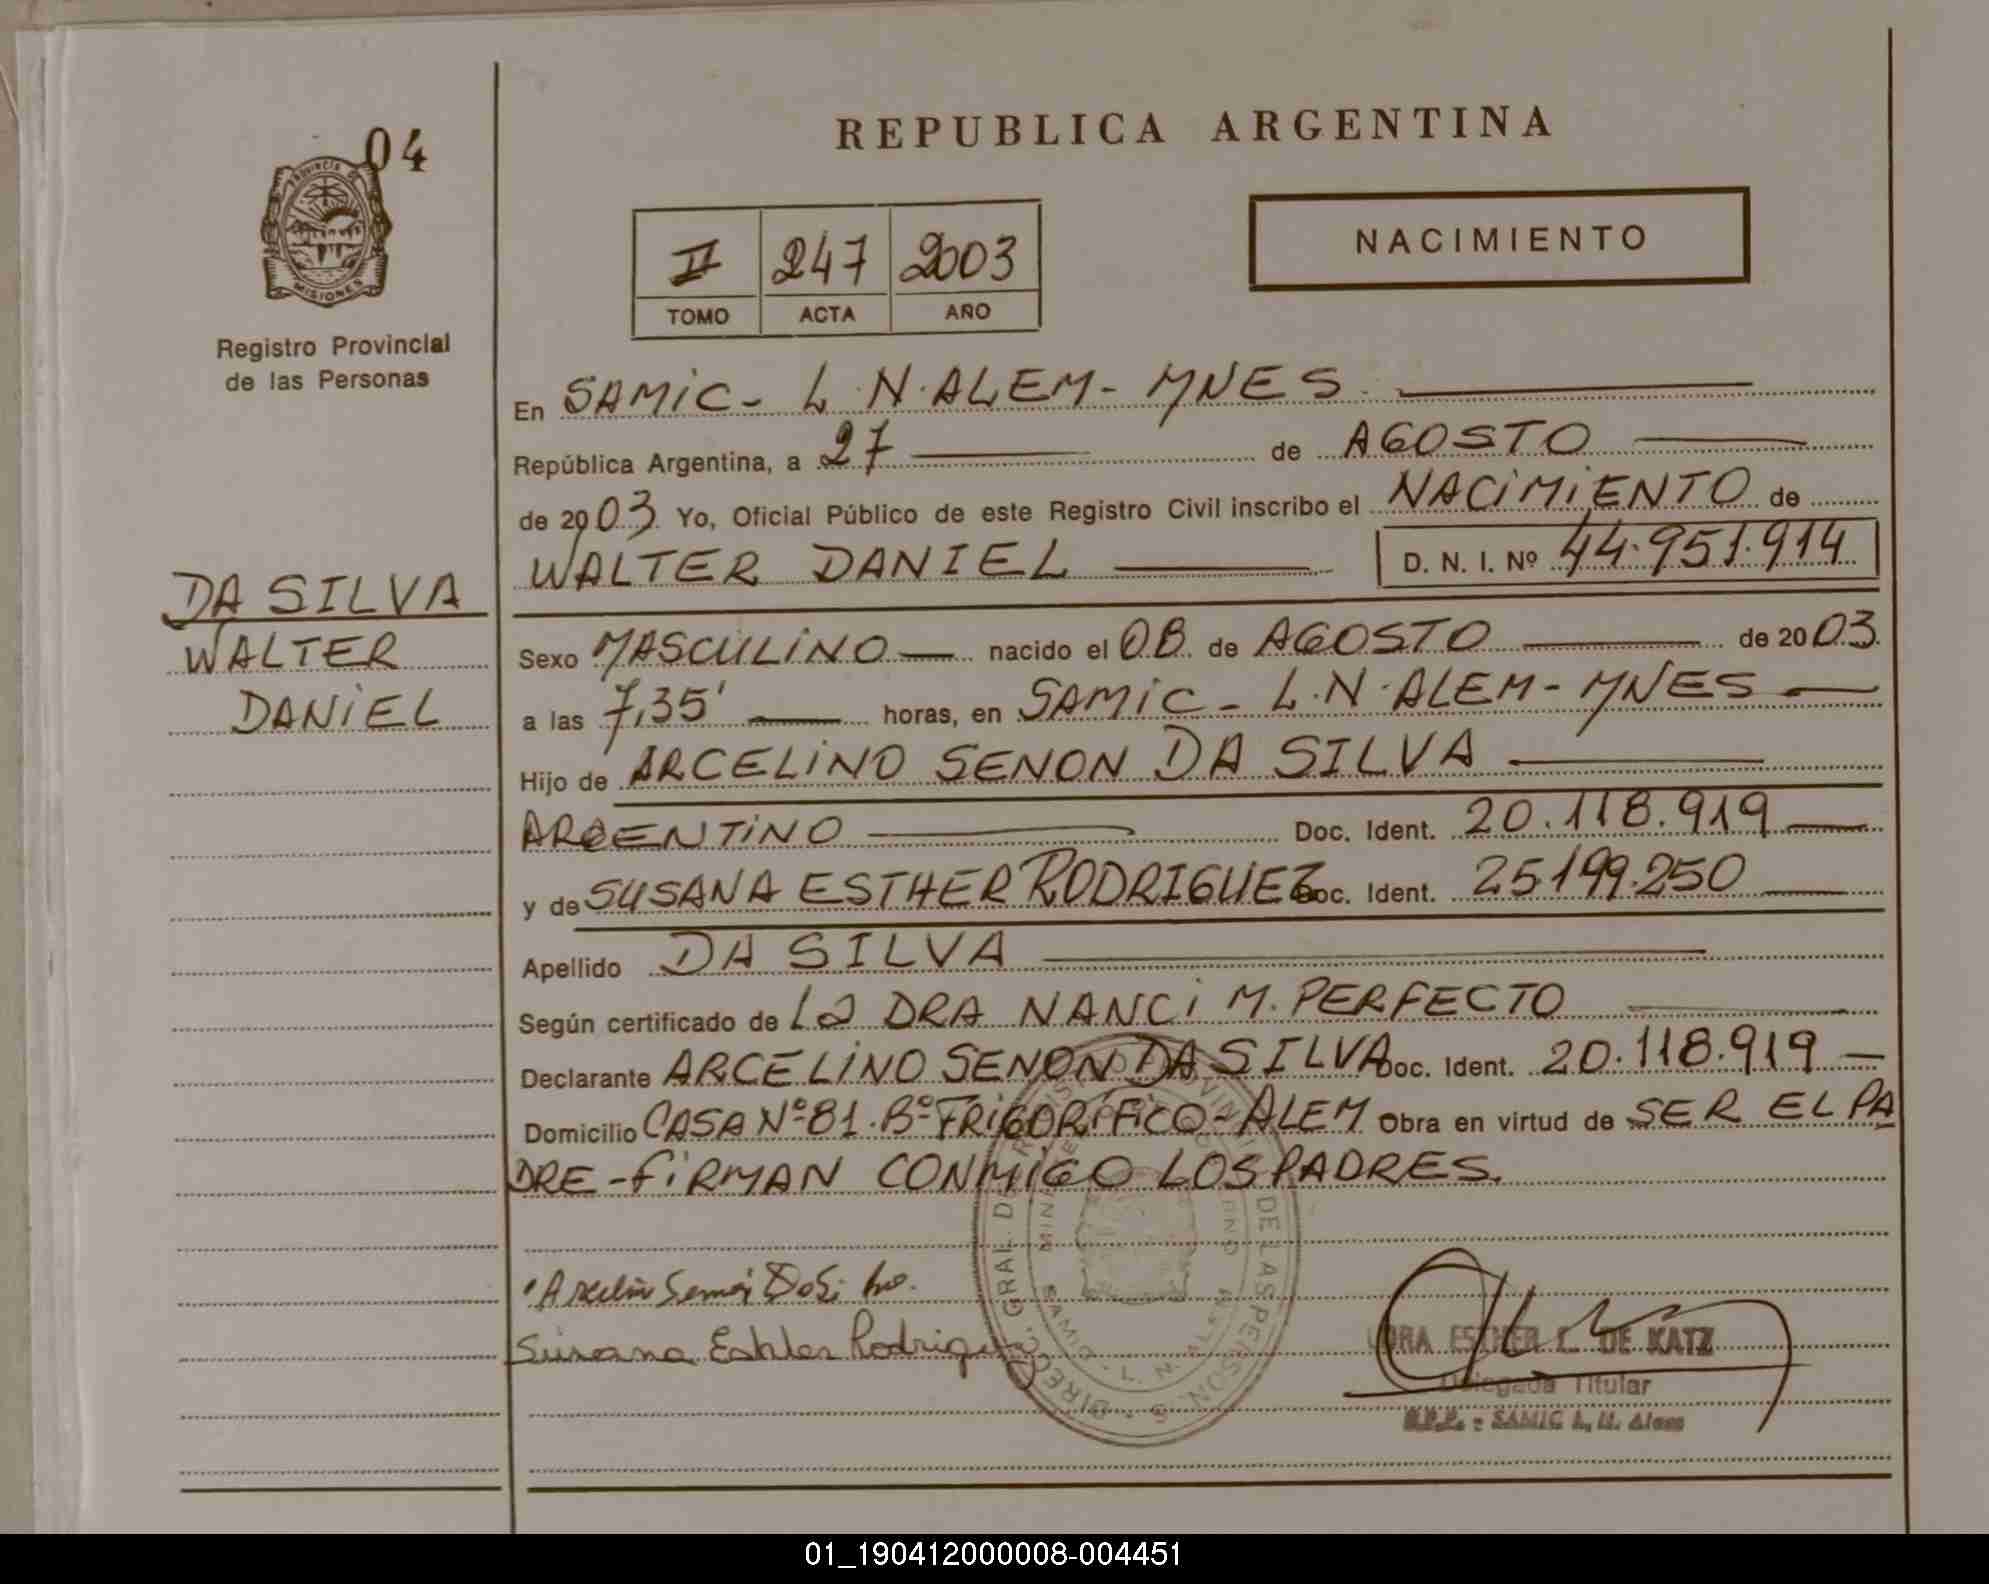 04
PROVINCIA DE
MISIONES
Registro Provincial
de las Personas
DA SILVA
WALTER
DANIEL
REPUBLICA ARGENTINA
II 247 2003
TOMO ACTA AÑO
NACIMIENTO
En SAMIC - L.N. ALEM - MNES
República Argentina, a 27 de AGOSTO
de 2003 Yo, Oficial Público de este Registro Civil inscribo el NACIMIENTO de
WALTER DANIEL D. N. I. Nº 44.951.914
Sexo MASCULINO nacido el 08 de AGOSTO de 2003
a las 7,35' horas, en SAMIC - L.N. ALEM - MNES
Hijo de ARCELINO SENON DA SILVA
ARGENTINO Doc. Ident. 20.118.919
y de SUSANA ESTHER RODRIGUEZ Doc. Ident. 25.199.250
Apellido DA SILVA
Según certificado de La DRA NANCI M. PERFECTO
Declarante ARCELINO SENON DA SILVA Doc. Ident. 20.118.919
Domicilio CASA Nº 81. Bº FRIGORIFICO - ALEM Obra en virtud de SER EL PA
DRE - FIRMAN CONMIGO LOS PADRES.
Susana Esther Rodriguez
ESTHER L. DE KATZ
Delegada Titular
R.P.P. - SAMIC L. N. Alem
01_190412000008-004451